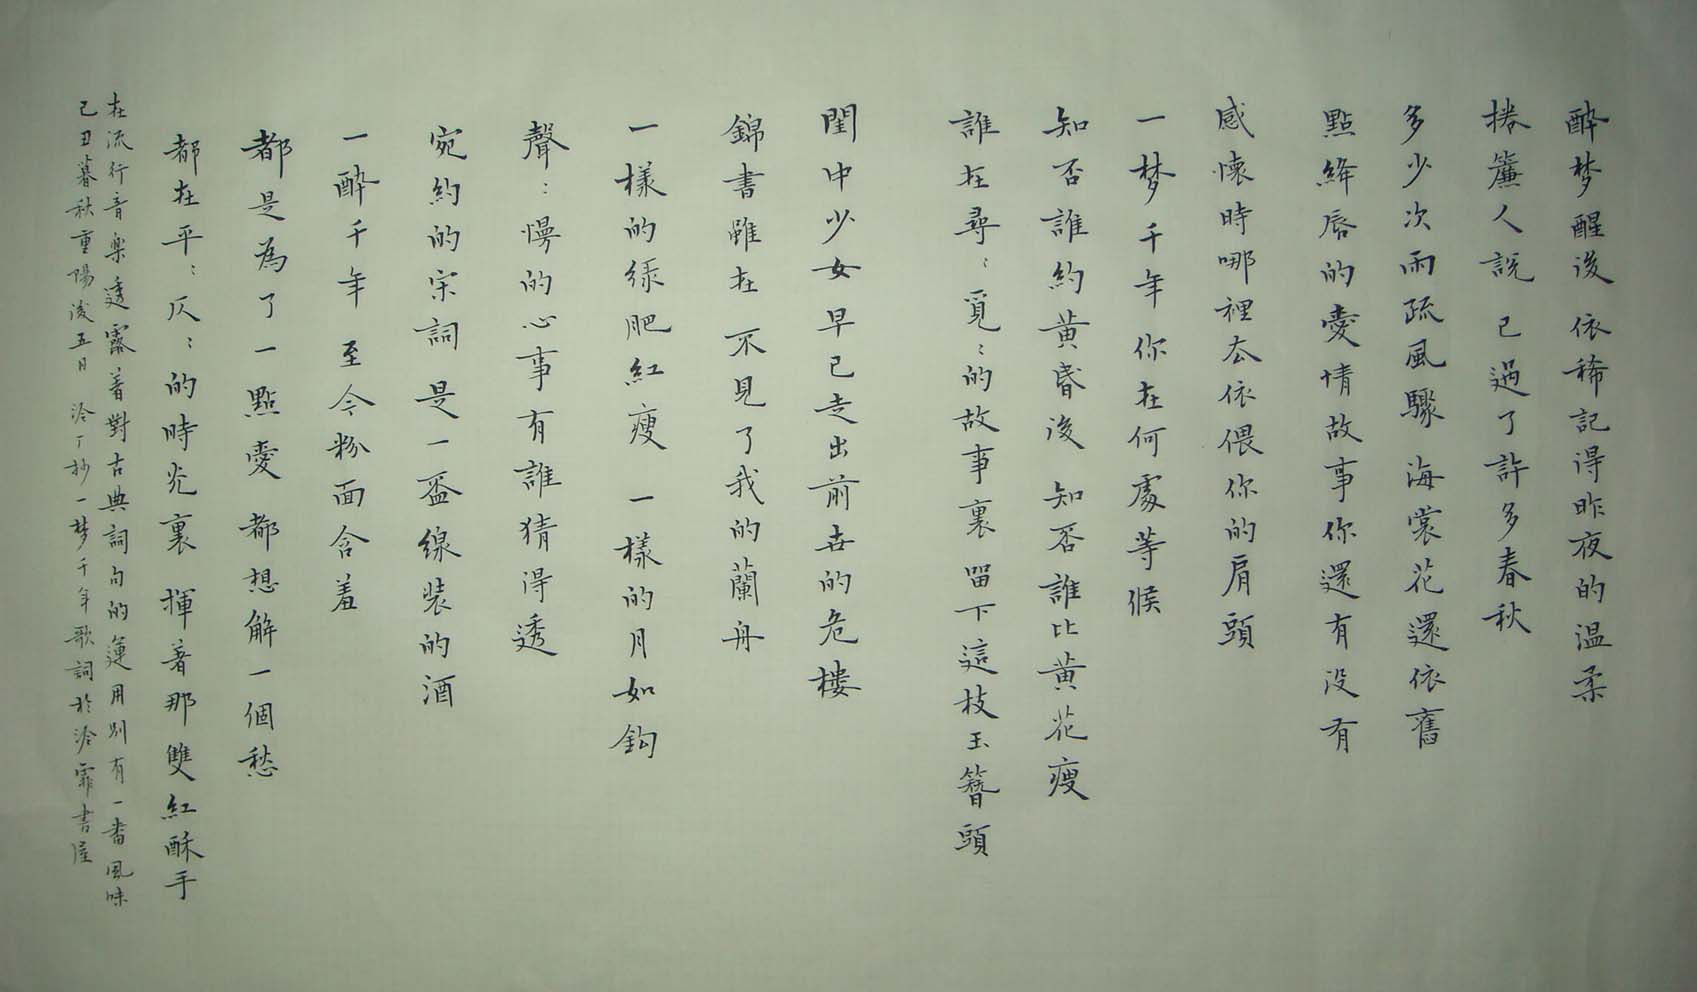 醉梦醒後 依稀記得昨夜的温柔
捲簾人説 已過了許多春秋
多少次雨疏風驟 海棠花還依舊
點絳唇的愛情故事你還有没有
感懷時哪裡去依偎你的肩頭
一梦千年 你在何處等候
知否誰約黄昏後 知否誰比黄花瘦
誰在尋：覓：的故事裏留下這枝玉簪頭
閨中少女早已走出前世的危楼
錦書雖在 不見了我的蘭舟
一樣的緑肥紅瘦 一樣的月如鈎
聲：慢的心事有誰猜得透
宛約的宋詞是一盃線装的酒
一醉千年 至今粉面含羞
都是為了一點愛 都想解一個愁
都在平：仄：的時光裏 揮著那雙紅酥手
在流行音樂透露著對古典詞句的運用别有一番風味
己丑暮秋重陽後五日 泠丁抄一梦千年歌詞於泠霏書屋